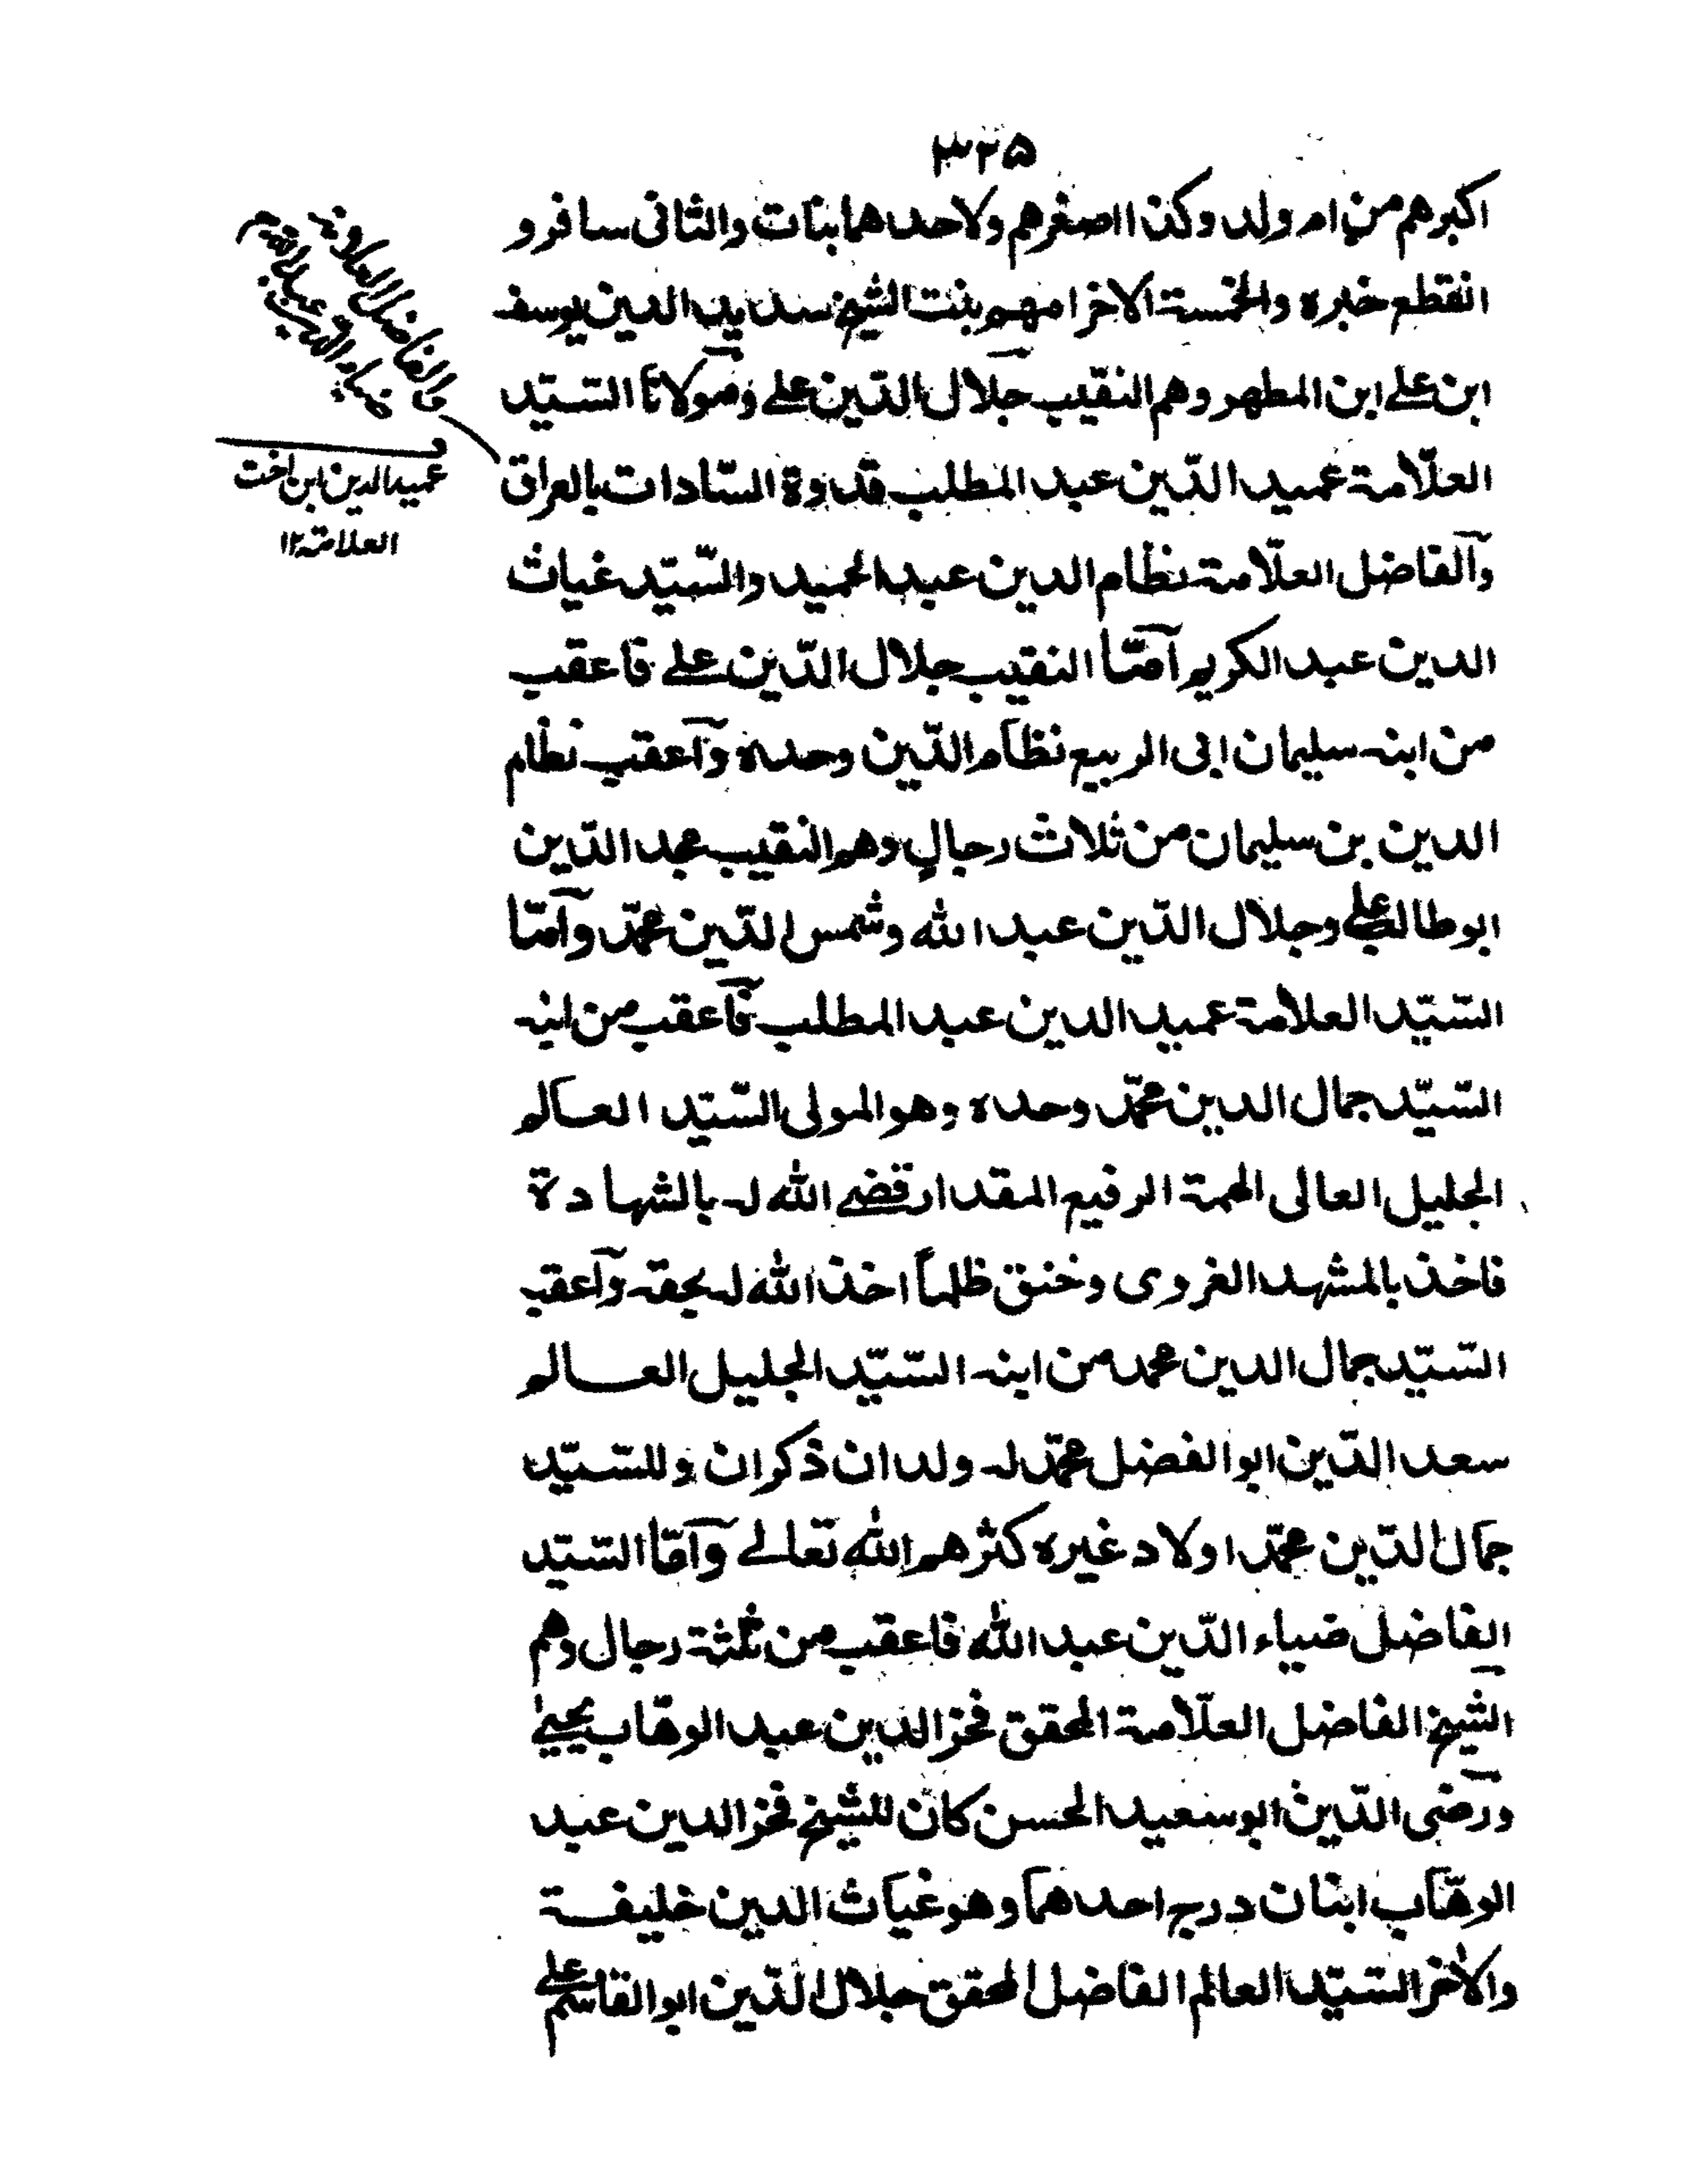 ۳۲۵
اكبرهم من ام ولد وكذا اصغرهم ولاحدهما بنات والثانى سافر و
انقطع خبره والخمسة الاخر امهم بنت الشيخ سديد الدين يوسف
ابن على ابن المطهر وهم النقيب جلال الدّين على ومولانا السّيّد
العلّامة عميد الدّين عبد المطلب قدوة السّادات بالعراق
والفاضل العلّامة نظام الدين عبد الحميد والسّيّد غياث
الدين عبد الكريم امّا النقيب جلال الدّين على فاعقب
من ابنه سليمان ابى الربيع نظام الدّين وحده واعقب نظام
الدين بن سليمان من ثلاث رجالٍ وهم النقيب مجد الدّين
ابو طالب على وجلال الدّين عبد الله وشمس الدّين محمّد وامّا
السّيّد العلامة عميد الدين عبد المطلب فاعقب من ابنه
السّيّد جمال الدين محمّد وحده وهو المولى السّيّد العالم
الجليل العالى الهمة الرفيع المقدار قضى الله له بالشهادة
فاخذ بالمشهد الغروى وخنق ظلماً اخذ الله له بحقه واعقب
السّيّد جمال الدين محمد من ابنه السّيّد الجليل العالم
سعد الدّين ابو الفضل محمّد له ولدان ذكران وللسّيّد
جمال الدّين محمّد اولاد غيره كثرهم الله تعالى وامّا السّيّد
الفاضل ضياء الدّين عبد الله فاعقب من ثلثة رجال وهم
الشيخ الفاضل العلّامة المحقق فخر الدين عبد الوهّاب يحيى
ورضى الدّين ابو سعيد الحسن كان للشيخ فخر الدين عبد
الوهّاب ابنان درج احدهما وهو غياث الدين خليفة
والاخر السّيّد العالم الفاضل المحقق جلال الدّين ابو القاسم على
والفاضل العلامة
ضياء الدين عبد الله
عميد الدين ابن اخت
العلامة ۱۲